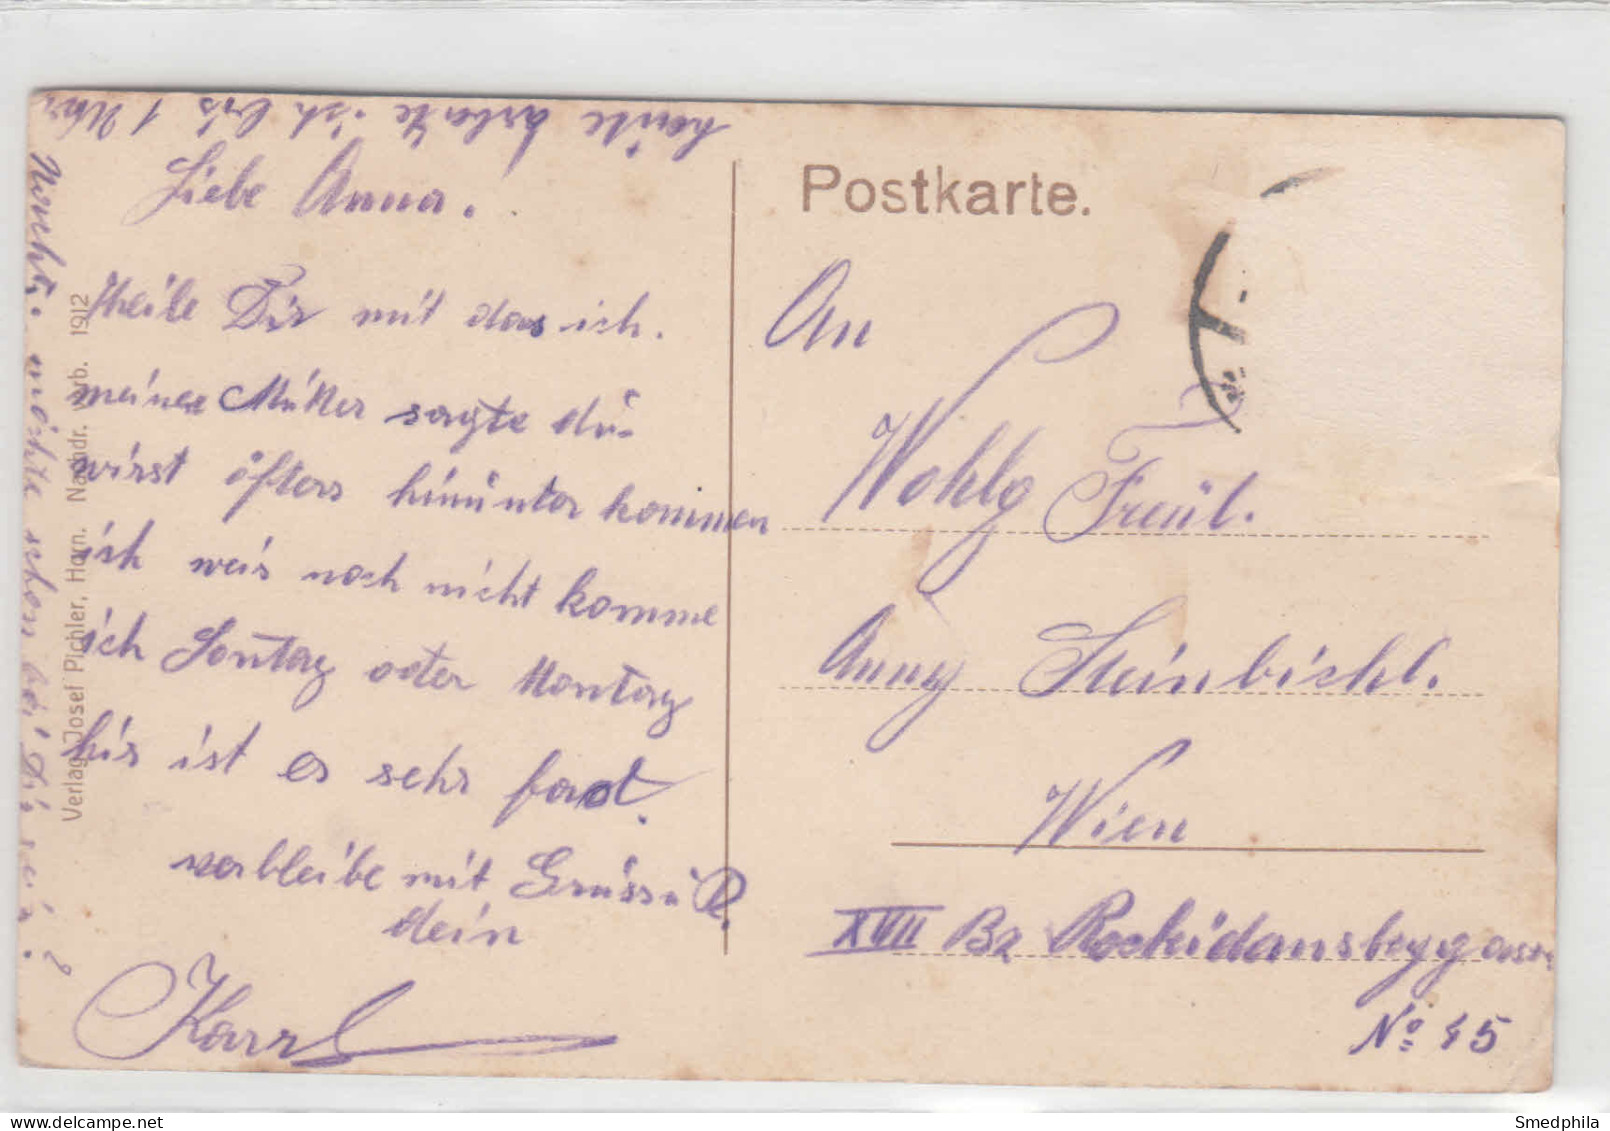 heute arbeite ich bis 1 Uhr
Nachts. möchte schon bei Dir sein!
Liebe Anna.
theile Dir mit das ich.
meine Mutter sagte du
wirst öfters hinunter kommen
ich weis noch nicht komme
ich Sontag oder Montag
hir ist es sehr fad.
verbleibe mit Grüss u K.
dein
Karl
Verlag Josef Pichler, Horn. Nachdr. verb. 1912
Postkarte.
An
Wohlg Freül.
Anny Steinbichl.
Wien
XVII Bz
No. 45
Smedphila